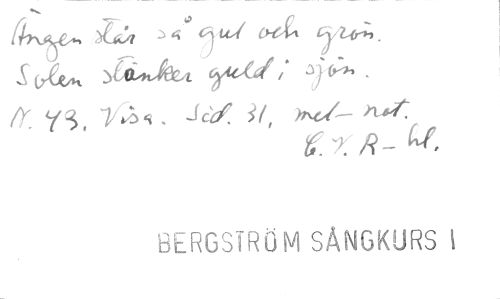 Ängen står så gul och grön.
Solen stänker guld i sjön.
N. 43. Visa. Sid. 31, mel-not.
C. V. R-hl.
BERGSTRÖM SÅNGKURS I